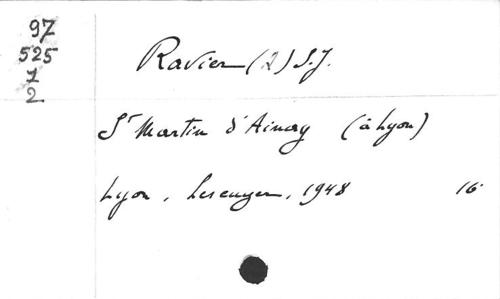 97
525
7
2
Ravier (2) S.J.
St Martin d'Ainay (à Lyon)
Lyon, Lescuyer, 1948 16.